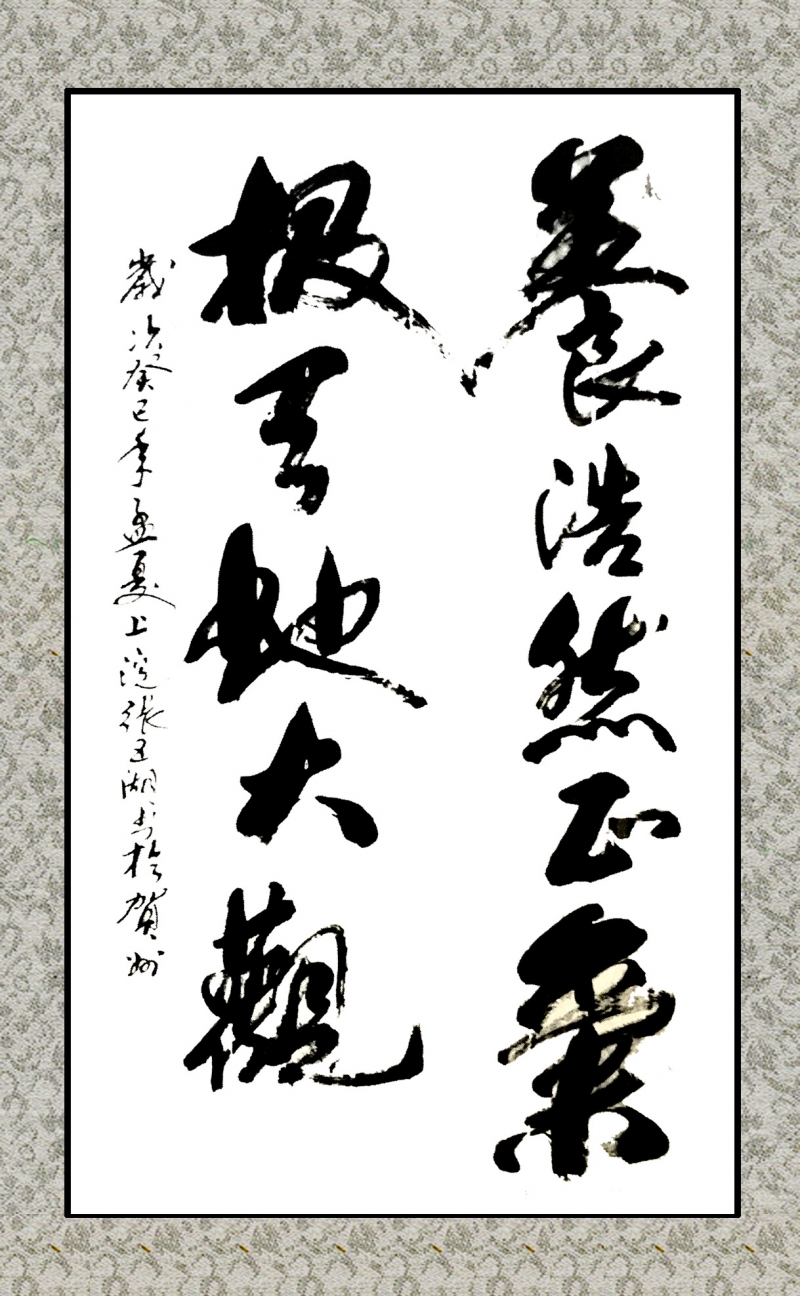 養浩然正氣
极天地大觀
歲次癸巳年孟夏上浣張湖書於賀州